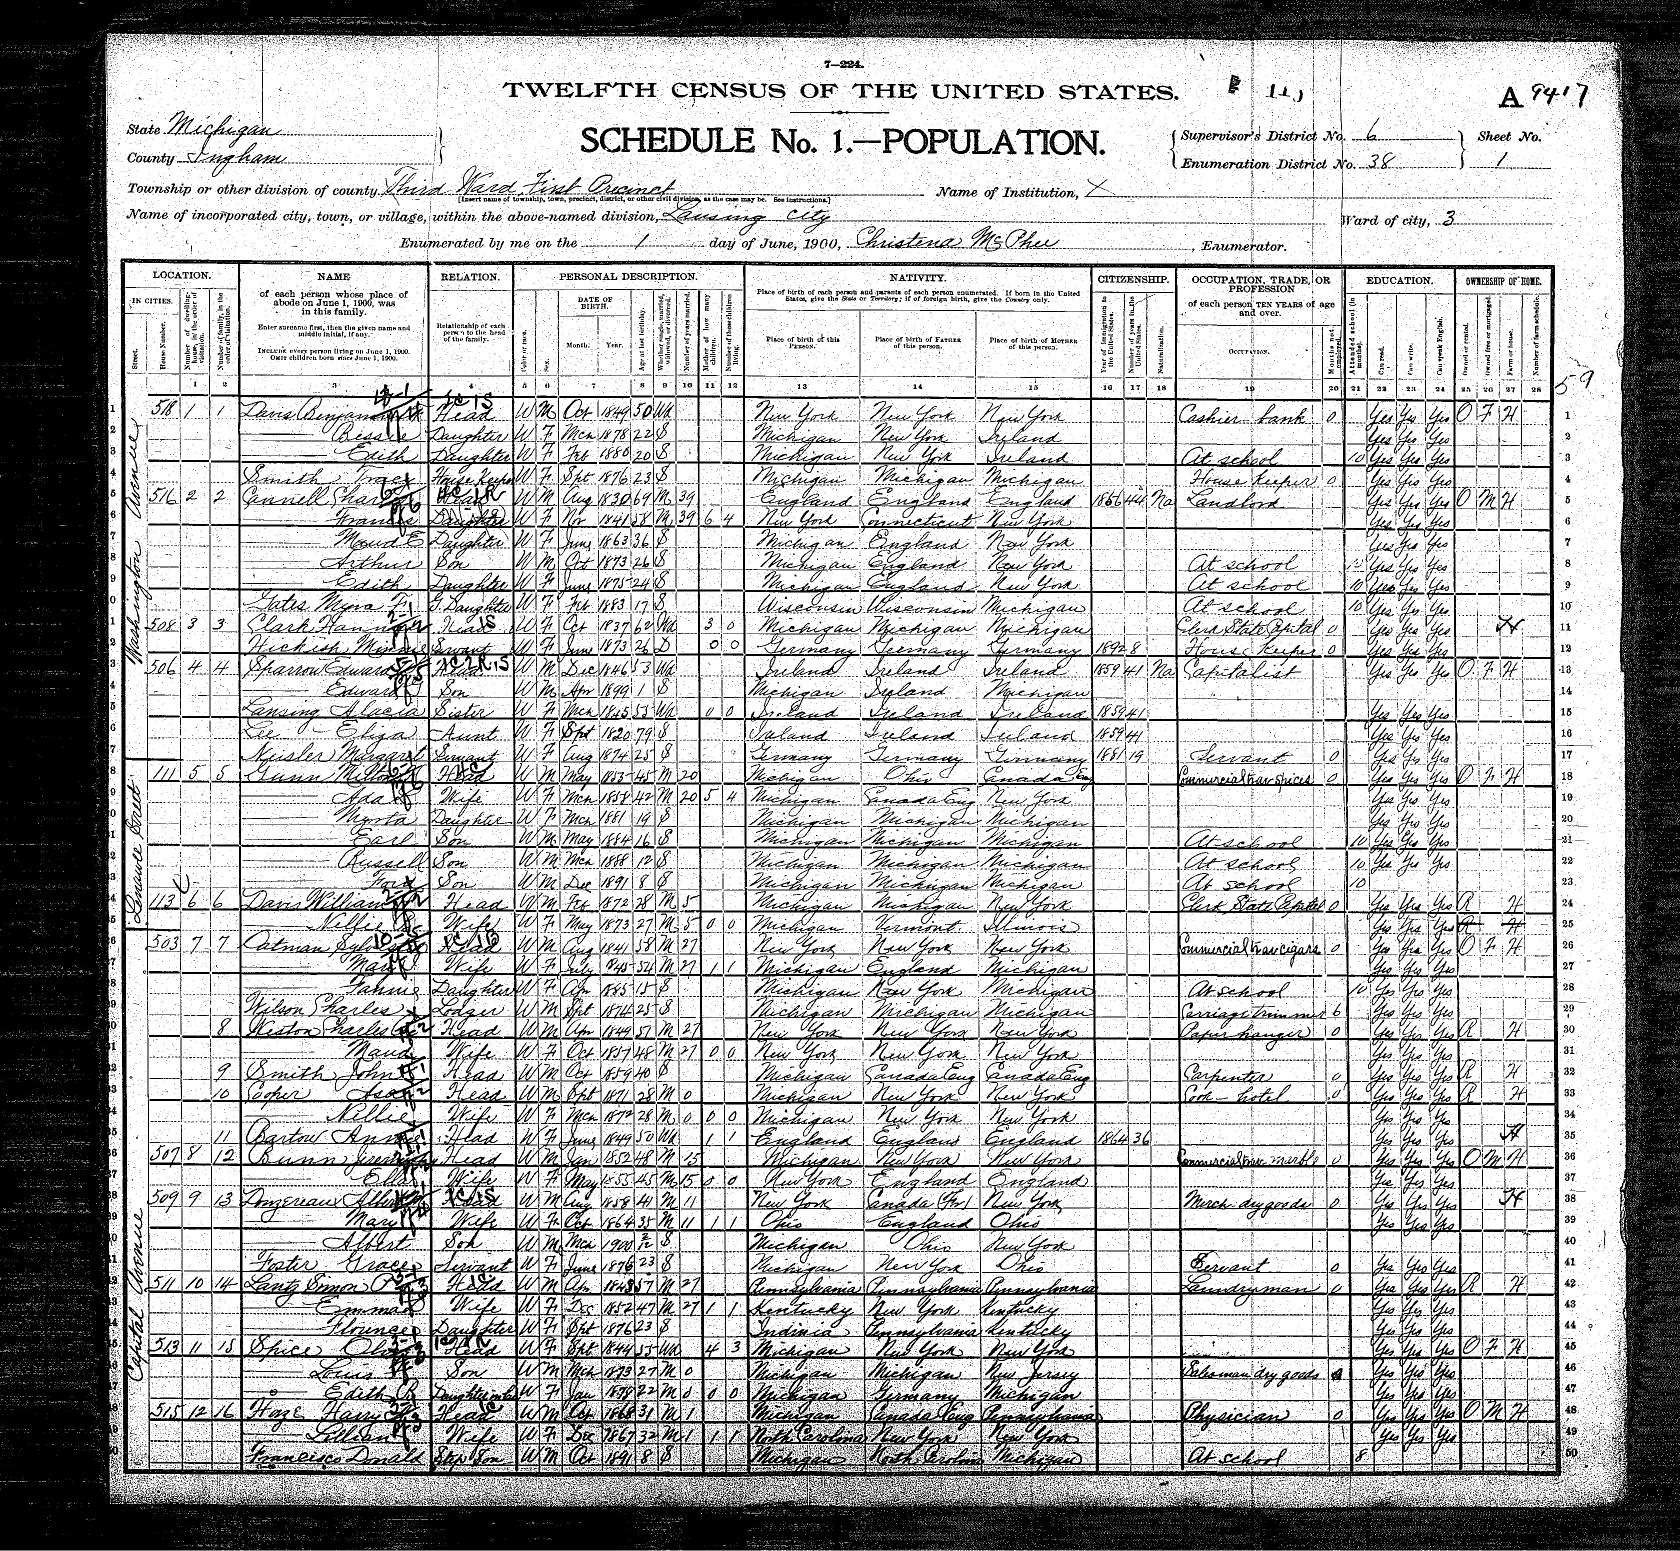 7—224.
TWELFTH CENSUS OF THE UNITED STATES.
A 9417
State Michigan
County Ingham
SCHEDULE No. 1.—POPULATION.
Supervisor's District No. 6
Enumeration District No. 38
Sheet No.
1
Township or other division of county Third Ward First Precinct
[Insert name of township, town, precinct, district, or other civil division, as the case may be. See instructions.]
Name of Institution, X
Name of incorporated city, town, or village, within the above-named division, Lansing City
Ward of city, 3
Enumerated by me on the 1 day of June, 1900, Christena McPhee, Enumerator.
LOCATION. NAME RELATION. PERSONAL DESCRIPTION. NATIVITY. CITIZENSHIP. OCCUPATION, TRADE, OR PROFESSION EDUCATION. OWNERSHIP OF HOME.
IN CITIES. of each person whose place of abode on June 1, 1900, was in this family.
Enter surname first, then the given name and middle initial, if any.
INCLUDE every person living on June 1, 1900.
OMIT children born since June 1, 1900.
Relationship of each person to the head of the family.
DATE OF BIRTH. Month. Year.
Place of birth of each person and parents of each person enumerated. If born in the United States, give the State or Territory; if of foreign birth, give the Country only.
Place of birth of this PERSON. Place of birth of FATHER of this person. Place of birth of MOTHER of this person.
of each person TEN YEARS of age and over.
OCCUPATION.
1 2 3 4 5 6 7 8 9 10 11 12 13 14 15 16 17 18 19 20 21 22 23 24 25 26 27 28
59
Washington Avenue
518 1 1 Davis Benjamin Head W M Oct 1849 50 Wd New York New York New York Cashier bank 0 Yes Yes Yes O F H 1
Bessie Daughter W F Mch 1878 22 S Michigan New York Ireland Yes Yes Yes 2
Edith Daughter W F Feb 1880 20 S Michigan New York Ireland At school 10 Yes Yes Yes 3
Smith Tracy House Keeper W F Spt 1876 23 S Michigan Michigan Michigan House Keeper 0 Yes Yes Yes 4
516 2 2 Cannell Head W M Aug 1830 69 M 39 England England England 1856 44 Na Landlord Yes Yes Yes O M H 5
Francis W F Nov 1841 58 M 39 6 4 New York Connecticut New York Yes Yes Yes 6
Maud E Daughter W F June 1863 36 S Michigan England New York Yes Yes Yes 7
Arthur Son W M Oct 1873 26 S Michigan England New York At school Yes Yes Yes 8
Edith Daughter W F June 1875 24 S Michigan England New York At school 10 Yes Yes Yes 9
Gates Myra F G. Daughter W F Feb 1883 17 S Wisconsin Wisconsin Michigan At school 10 Yes Yes Yes 10
508 3 3 Clark Hannah Head W F Oct 1837 62 Wd 3 0 Michigan Michigan Michigan Clerk State Capital 0 Yes Yes Yes H 11
Servant W F June 1873 26 D 0 0 Germany Germany Germany 1892 8 House Keeper 0 Yes Yes Yes 12
506 4 4 Sparrow Edward Head W M Dec 1846 53 Wd Ireland Ireland Ireland 1859 41 Na Capitalist Yes Yes Yes O F H 13
Edward Son W M Apr 1899 1 S Michigan Ireland Michigan 14
Lansing Alacia Sister W F Mch 1845 55 Wd 0 0 Ireland Ireland Ireland 1859 41 Yes Yes Yes 15
Lee Eliza Aunt W F Spt 1820 79 S Ireland Ireland Ireland 1859 41 Yes Yes Yes 16
Neisler Margaret Servant W F Aug 1874 25 S Germany Germany Germany 1881 19 Servant 0 Yes Yes Yes 17
Lenawee Street
111 5 5 Gunn Head W M May 45 M 20 Michigan Ohio Canada Eng Commercial trav spices 0 Yes Yes Yes O F H 18
Ada Wife W F Mch 1858 42 M 20 5 4 Michigan Canada Eng New York Yes Yes Yes 19
Myrta Daughter W F Mch 1881 19 S Michigan Michigan Michigan Yes Yes Yes 20
Earl Son W M May 1884 16 S Michigan Michigan Michigan At school 10 Yes Yes Yes 21
Russell Son W M Mch 1888 12 S Michigan Michigan Michigan At school 10 Yes Yes Yes 22
Ford Son W M Dec 1891 8 S Michigan Michigan Michigan At school 10 23
113 6 6 Davis William Head W M Feb 1872 28 M 5 Michigan Michigan New York Clerk State Capital 0 Yes Yes Yes R H 24
Nellie Wife W F May 1873 27 M 5 0 0 Michigan Vermont Illinois Yes Yes Yes R H 25
503 7 7 Oatman Head W M Aug 1841 58 M 27 New York New York New York Commercial trav cigars 0 Yes Yes Yes O F H 26
Mary Wife W F July 1845 54 M 27 1 1 Michigan England Michigan Yes Yes Yes 27
Fannie Daughter W F Apr 1885 15 S Michigan New York Michigan At school 10 Yes Yes Yes 28
Wilson Charles Lodger W M Spt 1874 25 S Michigan Michigan Michigan Carriage trimmer 6 Yes Yes Yes 29
8 Weston Charles Head W M Apr 1849 51 M 27 New York New York New York Paper hanger 0 Yes Yes Yes R H 30
Maud Wife W F Oct 48 M 27 0 0 New York New York New York Yes Yes Yes 31
9 Smith John Head W M Oct 1859 40 S Michigan Canada Eng Canada Eng Carpenter 0 Yes Yes Yes R H 32
10 Cooper Asa Head W M Spt 1871 28 M 0 Michigan New York New York Cook — hotel 0 Yes Yes Yes R H 33
Nellie Wife W F Mch 1872 28 M 0 0 0 Michigan New York New York Yes Yes Yes 34
11 Bartow Annie Head W F June 1849 50 Wd 1 1 England England England 1864 36 Yes Yes Yes H 35
Capital Avenue
507 8 12 Bunn Jeremiah Head W M Jan 1852 48 M 15 Michigan New York New York Commercial trav marble 0 Yes Yes Yes O M H 36
Ella Wife W F May 1855 45 M 15 0 0 New York England England Yes Yes Yes 37
509 9 13 Head W M Aug 1858 41 M 11 New York Canada (Fr) New York Merch. dry goods 0 Yes Yes Yes H 38
Mary Wife W F Oct 1864 35 M 11 1 1 Ohio England Ohio Yes Yes Yes 39
Albert Son W M Mch 1900 2/12 S Michigan Ohio New York 40
Foster Grace Servant W F June 1876 23 S Michigan New York Ohio Servant 0 Yes Yes Yes 41
511 10 14 Lantz Simon P Head W M Apr 1843 57 M 27 Pennsylvania Pennsylvania Pennsylvania Laundryman 0 Yes Yes Yes R H 42
Emma Wife W F Dec 1852 47 M 27 1 1 Kentucky New York Kentucky Yes Yes Yes 43
Florence Daughter W F Spt 1876 23 S Indinia Pennsylvania Kentucky Yes Yes Yes 44
513 11 15 Spice Olive Head W F Spt 1844 55 Wd 4 3 Michigan New York New York Yes Yes Yes O F H 45
Louis Son W M Mch 1873 27 M 0 Michigan Michigan New Jersey Salesman dry goods Yes Yes Yes 46
Edith R Daughter in law W F Jan 1878 22 M 0 0 0 Michigan Germany Michigan Yes Yes Yes 47
515 12 16 Haze Harry Head W M Oct 1868 31 M 1 Michigan Canada Eng Pennsylvania Physician 0 Yes Yes Yes O M H 48
Lillian Wife W F Dec 1867 32 M 1 1 1 North Carolina New York New York Yes Yes Yes 49
Francisco Donald Step Son W M Oct 1891 8 S Michigan North Carolina Michigan At school 8 50